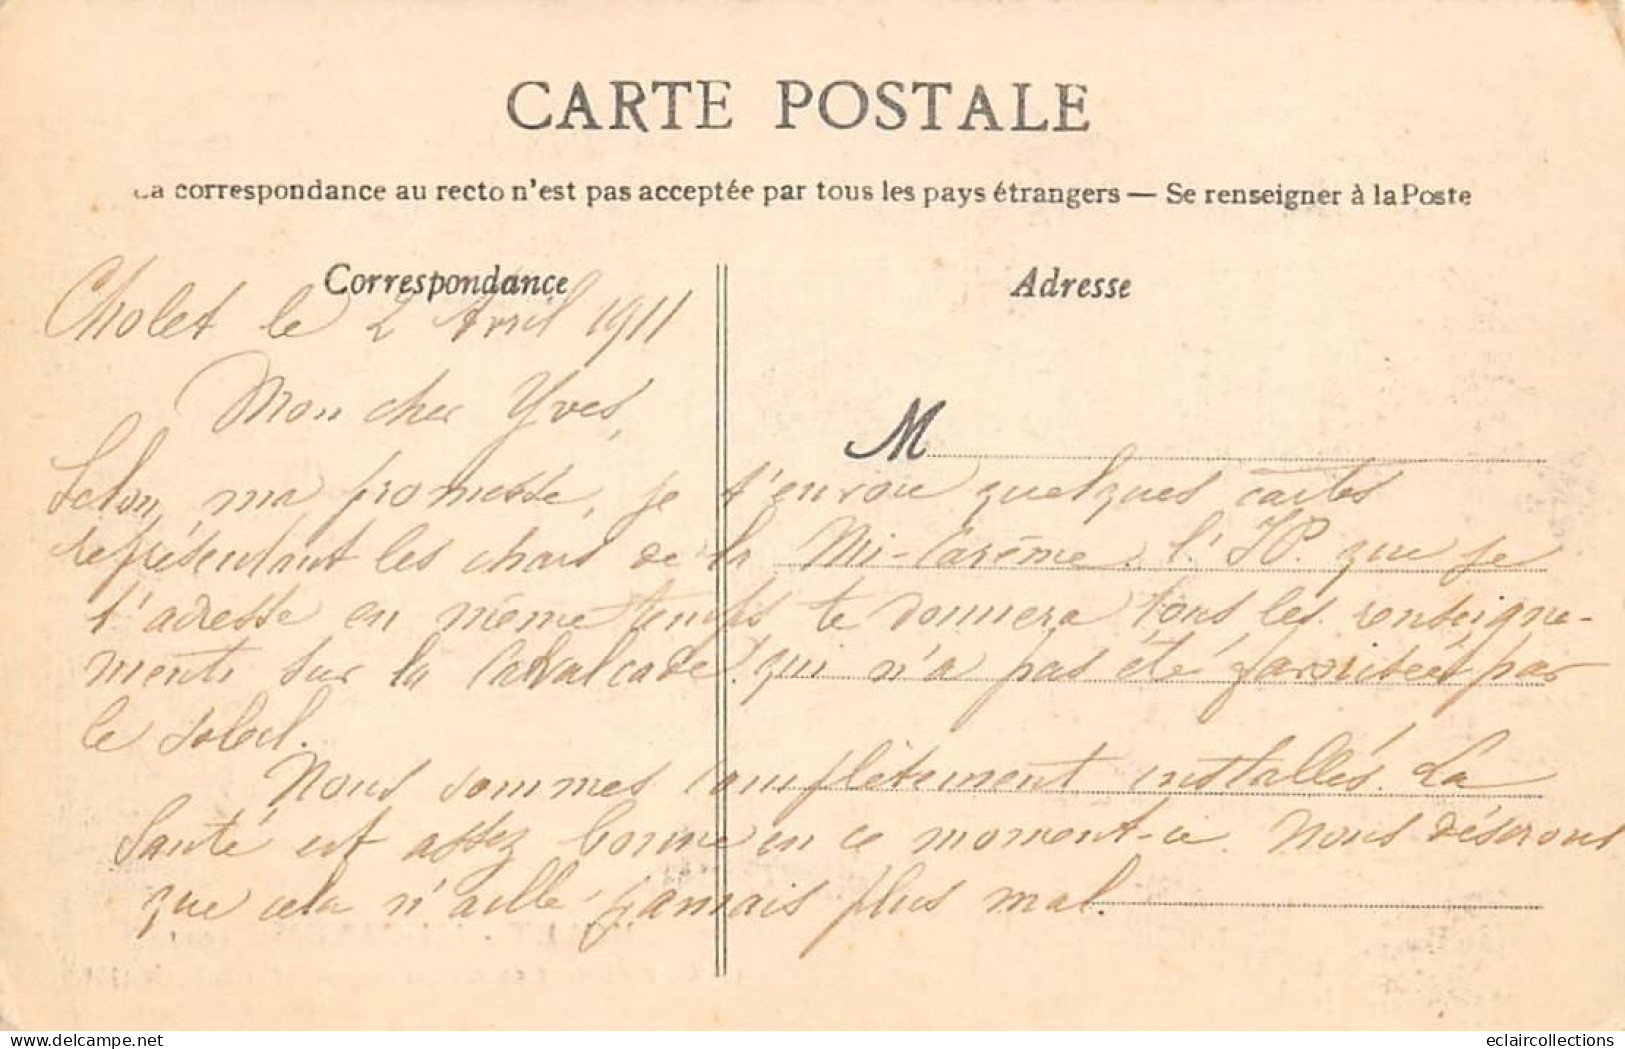 CARTE POSTALE
La correspondance au recto n'est pas acceptée par tous les pays étrangers — Se renseigner à la Poste
Correspondance
Adresse
Cholet le 2 Avril 1911
Mon cher Yves,
M
Selon ma promesse, je t'envoie quelques cartes
représentant les chars de la Mi-Carême. l'I.P. que je
t'adresse en même temps te donnera tous les renseigne-
ments sur la Cavalcade qui n'a pas été favorisée par
le soleil.
Nous sommes complètement installés. La
Santé est assez bonne en ce moment-ci. Nous désirons
que cela n'aille jamais plus mal.
delcampe.net
eclaircollections